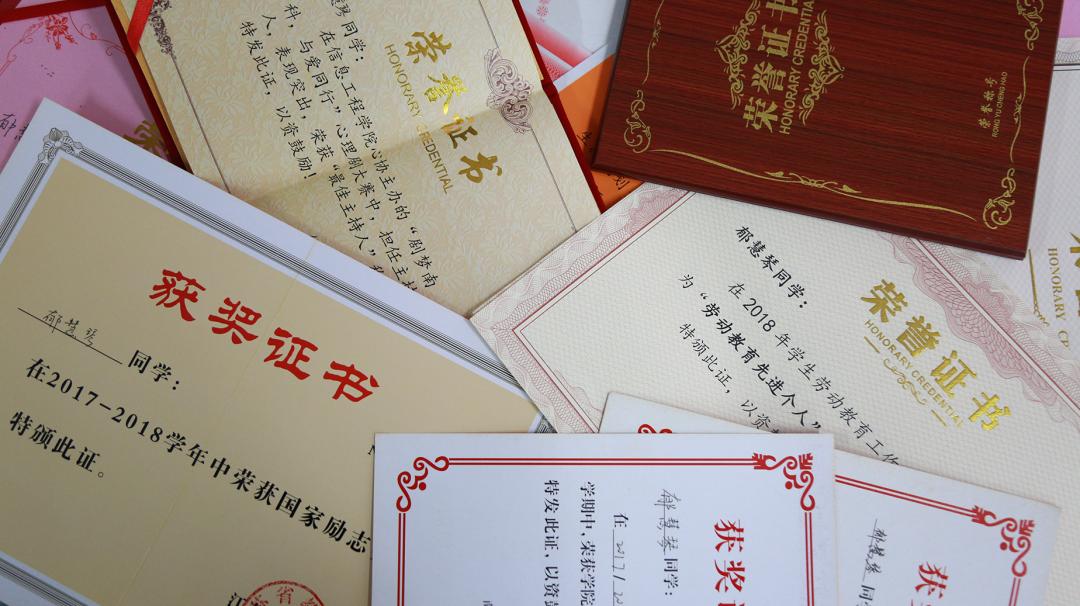 荣誉证书
HONORARY CREDENTIAL
同学:
在信息工程学院心协主办的“剧梦南
与爱同行”心理剧大赛中,担任主持
科,表现突出,荣获“最佳主持人”
特发此证,以资鼓励!
荣誉证书
HONORARY CREDENTIAL
荣誉称号
RONG YU CHENG HAO
荣誉证书
HONORARY CREDENTIAL
郁慧琴同学:
在2018年学生劳动教育工作
为“劳动教育先进个人”
特颁此证,以资
HONORARY
获奖证书
郁慧琴同学:
在2017-2018学年中荣获国家励志
特颁此证。
获奖
郁慧琴同学:
在2017/20
学期中,荣获学院
特发此证,以资
获
郁慧琴同学